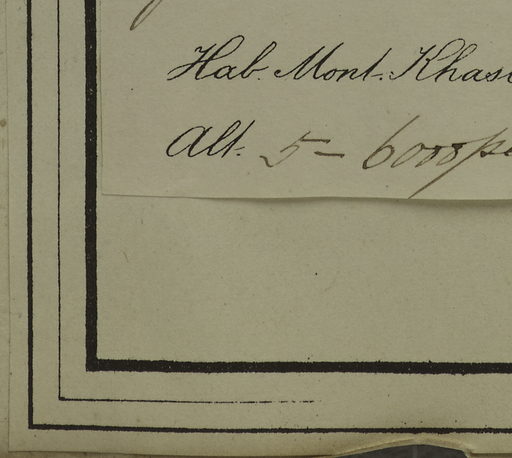 Hab. Mont. Khas
Alt. 5 – 6000 pe